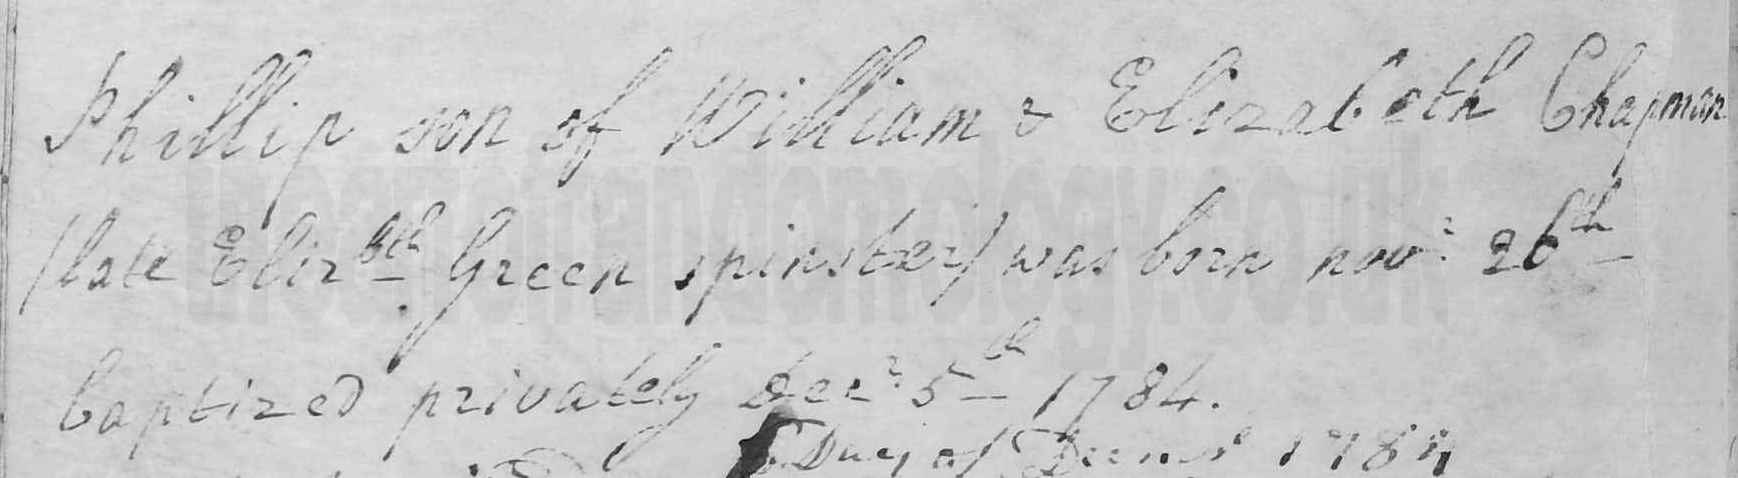 Phillip son of William & Elizabeth Chapman
/late Elizbth Green spinster/ was born novr 26th
baptized privately decr 5th 1784.
Day of Decemr 1784